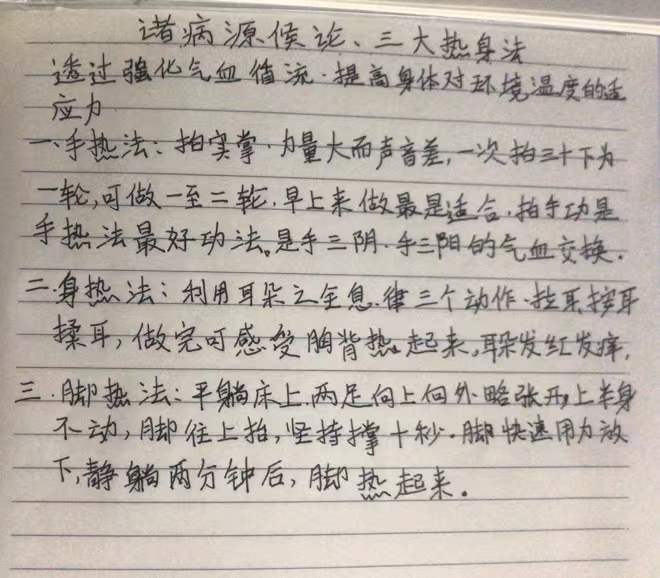 诸病源候论、三大热身法
透过强化气血循流·提高身体对环境温度的适
应力.
一、手热法：拍实掌·力量大而声音差,一次拍三十下为
一轮,可做一至二轮.早上来做最是适合.拍手功是
手热法最好功法。是手三阴.手三阳的气血交换.
二.身热法：利用耳朵之全息.律三个动作·拉耳按耳
揉耳，做完可感受胸背热。起来,耳朵发红发痒.
三.脚热法：平躺床上.两足向上向外略张开,上半身
不动,脚往上抬,坚持撑十秒.脚快速用力放
下,静躺两分钟后,脚热起来。